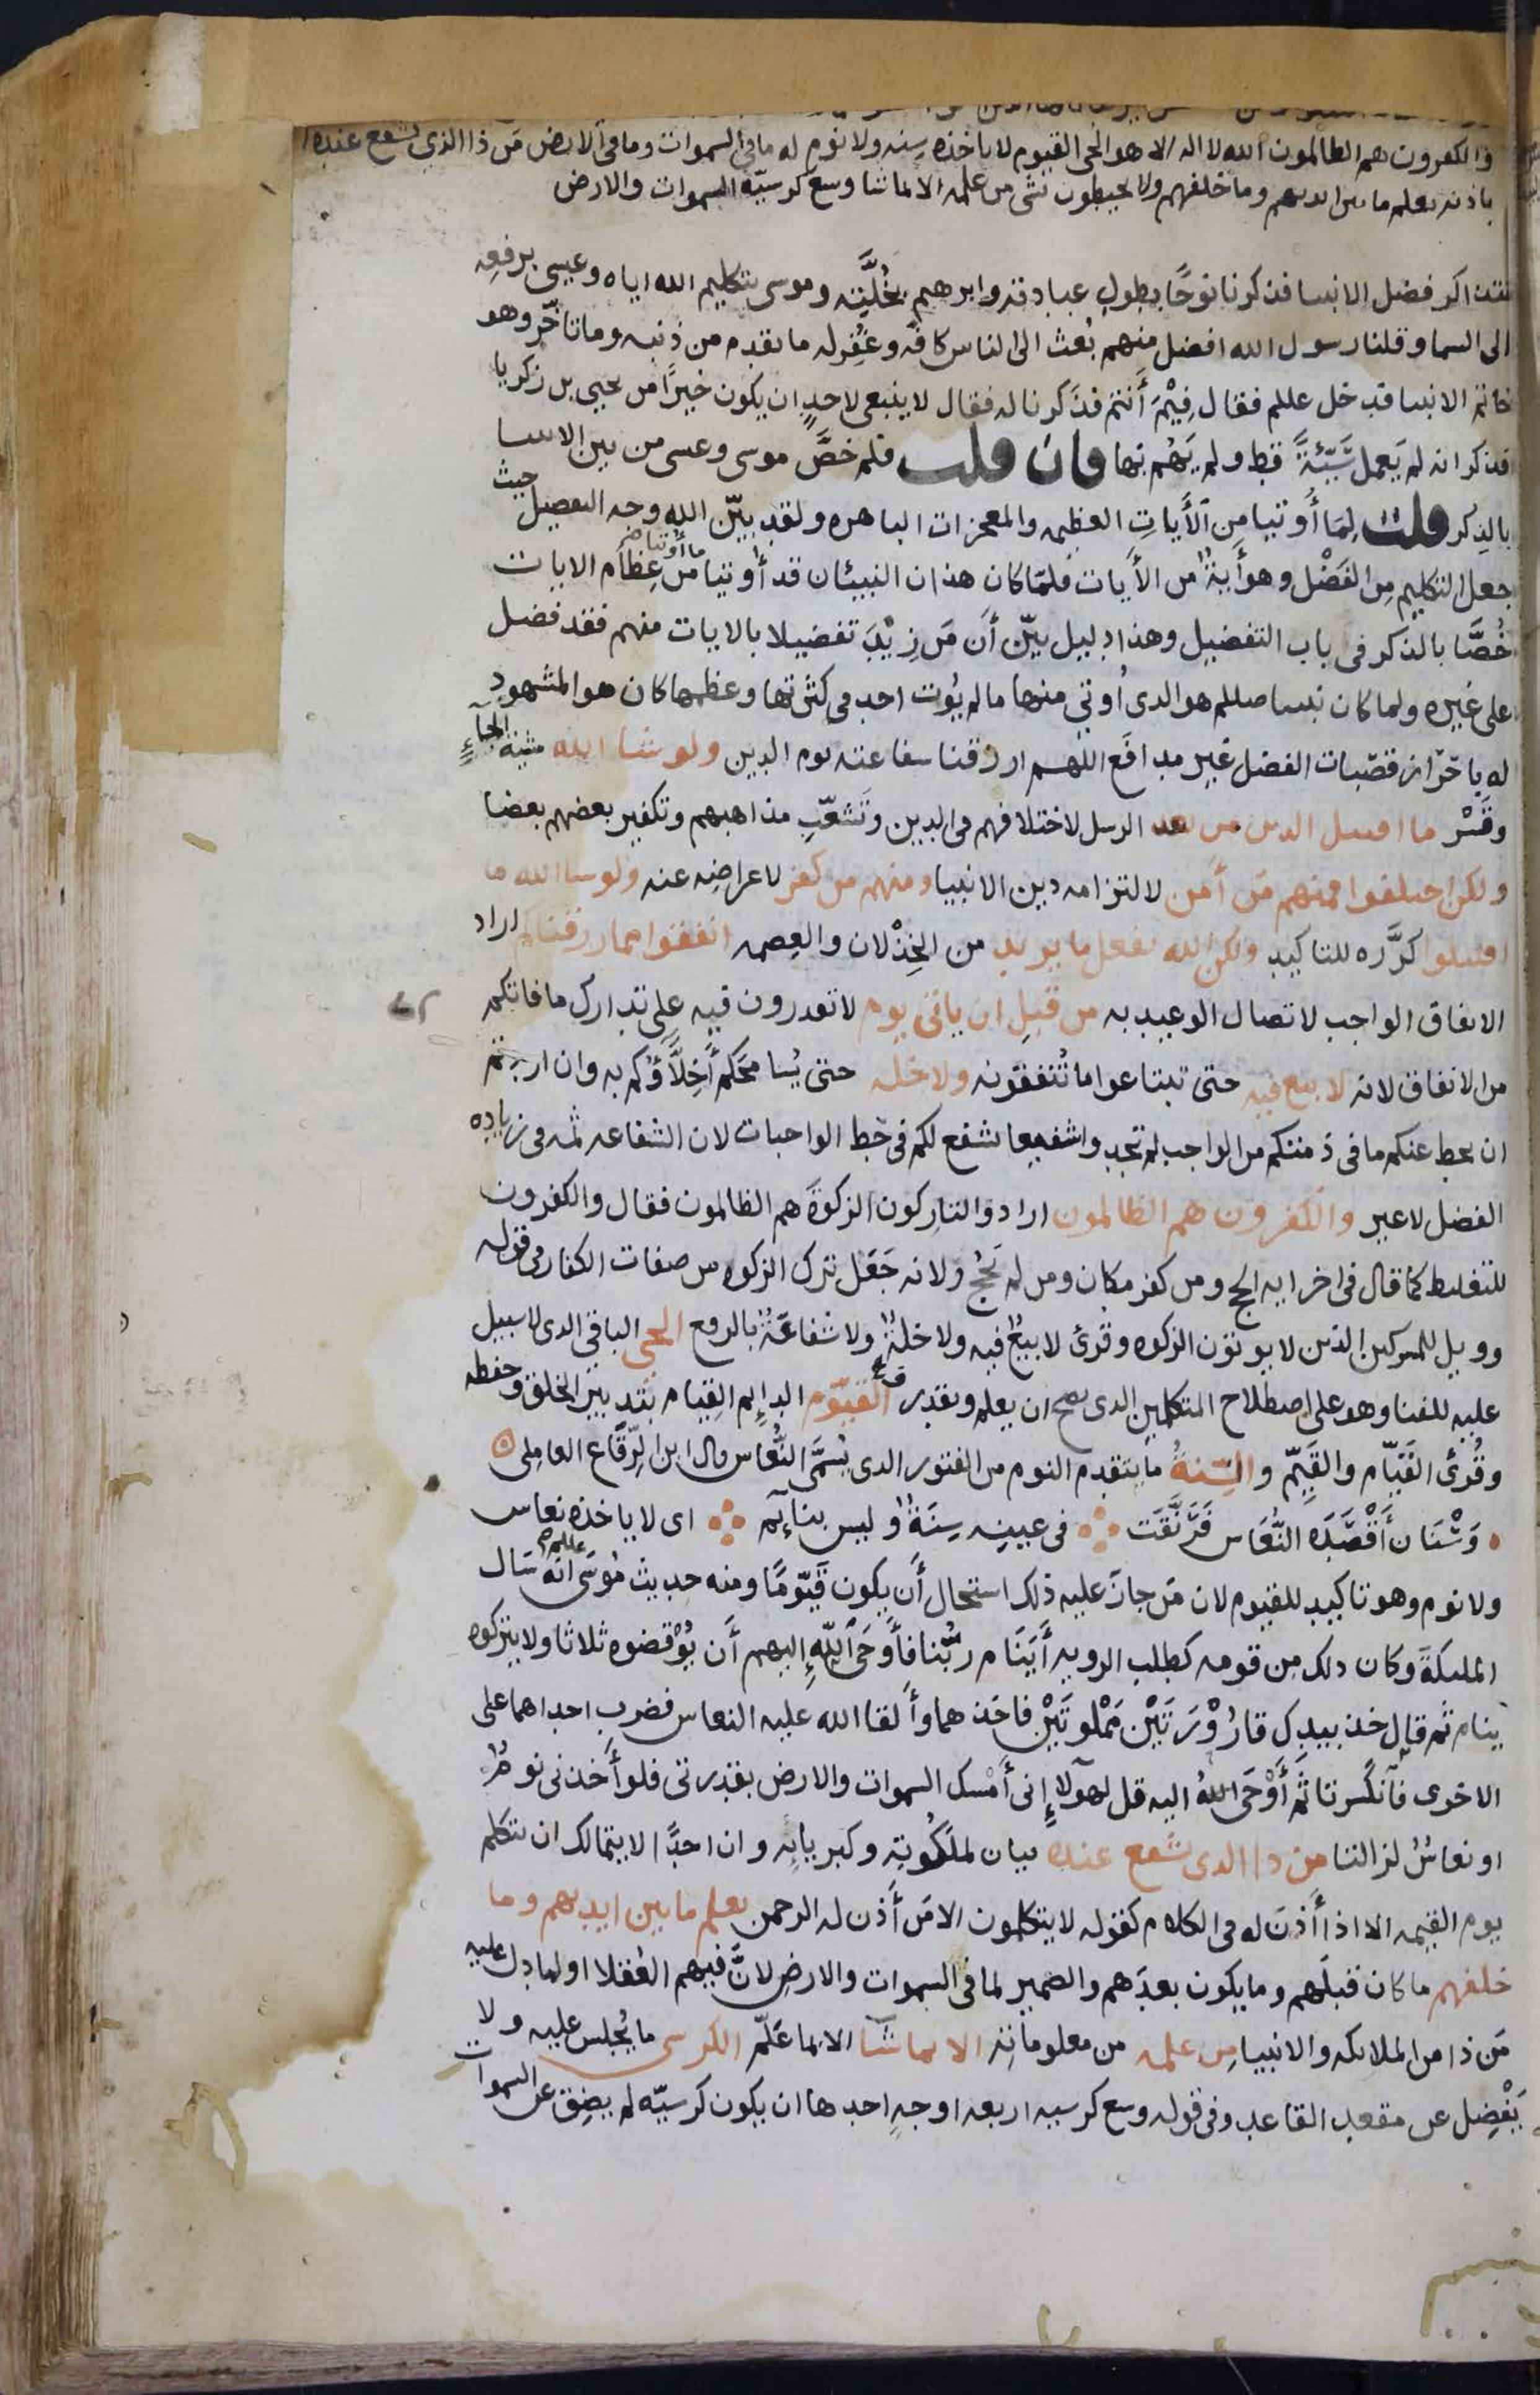 والكفرون هم الظالمون الله لا اله الا هو الحى القيوم لا ياخذه سنه ولا نوم له ما فى السموات وما فى الارض مَن ذا الذى يشفع عنده ا
باذنه يعلم ما بين ايديهم وما خلفهم ولا يحيطون بشى من علمه الا بما شا وسع كرسيّه السموات والارض
نتذاكر فضل الانبيا فذكرنا نوحًا بطول عبادته وابرهيم بخُلَّتِه وموسى بتكليم الله اياه وعيسى برفعِه
الى السما وقلنا رسول الله افضل منهم بُعث الى الناس كافّه وغُفِر له ما تقدم من ذنبه وما تاخّر وهو
خاتم الانبيا فدخل عللم فقال فِيْمَ أَنتم فذكرنا له فقال لا ينبغى لاحدٍ ان يكون خيرًا من يحيى بن زكريا
فذكر انه لم يَعمل سَيّئةً قط ولم يَهُم بها فان قلت فلم خصَّ موسى وعيسى من بين الانبيا
بالذِكر قلت لِمَا أُوتيا مِن الأَياتِ العظيمه والمعجزات الباهره ولقد بيّن الله وجه التفضيل حيث
جعل التكليم مِن الفَضْل وهو أَيةٌ من الأَيات فلمّا كان هذان النبيئان قد أُوتيا ما أوتيا من عِظَام الايات
خُصَّا بالذكر فى باب التفضيل وهذا دليل بيّن أَن مَن زِيْدَ تفضيلا بالايات منهم فقد فضل
على غيره ولما كان نبينا صللم هو الذى أُوتى منها ما لم يُوت احد فى كثرتها وعظمها كان هو المشهود
له باحرَاز قصَبات الفضل غير مدافَع اللهم ارزقنا شفاعته يوم الدين ولو شا الله مشيئة الجاءٍ
وقَسْر ما اقتتل الذين من بعد الرسل لاختلافهم فى الدين وتَشعّبِ مذاهبهم وتكفير بعضهم بعضا
ولكن اختلفوا فمنهم مَن أَمن لالتزامه دين الانبيا ومنهم من كفر لاعراضِه عنه ولو شا الله ما
اقتتلوا كرَّره للتاكيد ولكن الله يفعل ما يريد من الخِذْلان والعِصمه انفقوا مما رزقناكم اراد
الانفاق الواجب لاتصال الوعيد به من قبلِ ان ياتى يوم لا تقدرون فيه على تدارك ما فاتكم
من الانفاق لانه لا بيع فيه حتى تبتاعوا ما تُنفقونه ولا خله حتى يُسامحَكم أَخِلَّاؤُكم به وان اردتم
ان يحط عنكم ما فى ذمتكم من الواجب لم تجدوا شفيعا يشفع لكم فى حَط الواجبات لان الشفاعه ثمه فى زياده
الفضل لا غير والكفرون هم الظالمون اراد والتارِكون الزكوةَ هم الظالمون فقال والكفرون
للتغليظ كما قال فى اخر ايه الحج ومن كفر مكان ومن لم يَحُج ولانه جَعَل ترك الزكوه من صفات الكفار فى قوله
وويل للمشركين الذين لا يوتون الزكوه وقرئ لا بيعٌ فيه ولا خلةٌ ولا شفاعَةٌ بالرفع الحى الباقى الذى لا سبيل
عليه للفنا وهو على اصطلاح المتكلمين الذى يصح ان يعلم ويقدر القَيّوم الدائم القِيام بتدبيرِ الخلق وحفظه
وقُرئ القَيّام والقَيِّم والسِّنةُ ما يتقدم النوم من الفتور الذى يُسَمَّى النُّعَاس قال ابن الرِّقَاع العاملى
وَسْنَان أَقْصَدَه النُّعَاس فَرَنَّقَت فى عينِه سِنَةٌ وليس بنائم اى لا ياخذه نعاس
ولا نوم وهو تاكيد للقيوم لان مَن جازَ عليه ذلك استحال أَن يكون قَيّومًا ومنه حديث مُوسى عللم انه سَال
المليكةَ وكان ذلك مِن قومه كطلب الرويه أَيَنَام ربُّنا فأَوحَى اللهُ إِليهم أَن يُوْقضوه ثلاثا ولا يتركوه
ينام ثم قال خذ بيدك قارُوْرَتَيْن مَمْلوتَيْن فاخَذهما وأَلقا الله عليه النعاس فضرب احداهما على
الاخرى فآنكَسرتا ثُم أَوْحَى اللهُ اليه قل لهَولا إِنى أَمْسك السموات والارض بقدرتى فلو أَخذنى نومٌ
او نعاسٌ لزالتا من ذا الذى يشفع عنده بيان لملَكُوتِه وكبريائِه وان احدًا لا يتمالك ان يتكلم
يوم القيمه الا اذا أَذنَ له فى الكلام كقوله لا يتكلمون الا مَن أَذن له الرحمن يعلم ما بين ايديهم وما
خلفهم ما كان قبلَهم وما يكون بعدَهم والضمير لما فى السموات والارض لانَّ فيهم العُقلا او لما دل عليه
مَن ذا من الملائكه والانبيا مِن علمه من معلوماتِه الا بما شآ الا بما عَلّم الكرسى ما يُجلَس عليه ولا
يَفْضِل عن مقعد القاعد وفى قوله وسع كرسيه اربعه اوجهٍ احدها ان يكون كرسيّه لم يضِق عن السموات